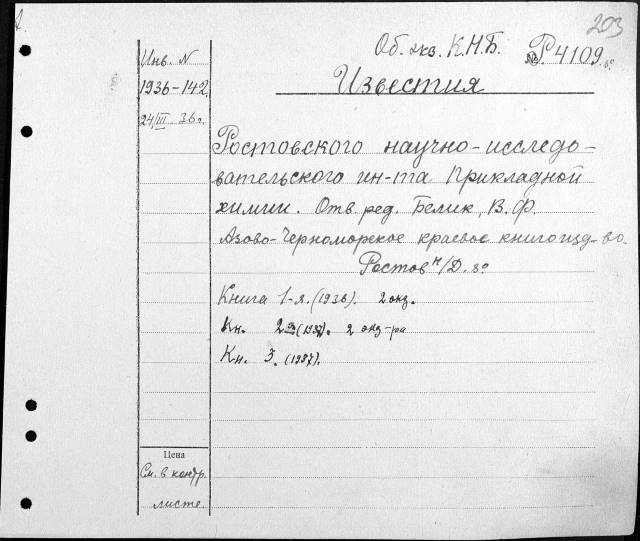 203
Об. экз. К.Н.Б. № Р4109. 8°
Инв. N
1936-142.
24/III 36 г.
Известия
Ростовского научно-исследо-
вательского ин-та Прикладной
химии. Отв. ред. Белик, В.Ф.
Азово-Черноморское краевое книгоизд-во.
Ростов н/Д. 8°
Книга 1-я. (1936). 2 экз.
Кн. 2я (1937). 2 экз-ра
Кн. 3. (1937).
Цена
См. в контр.
листе.